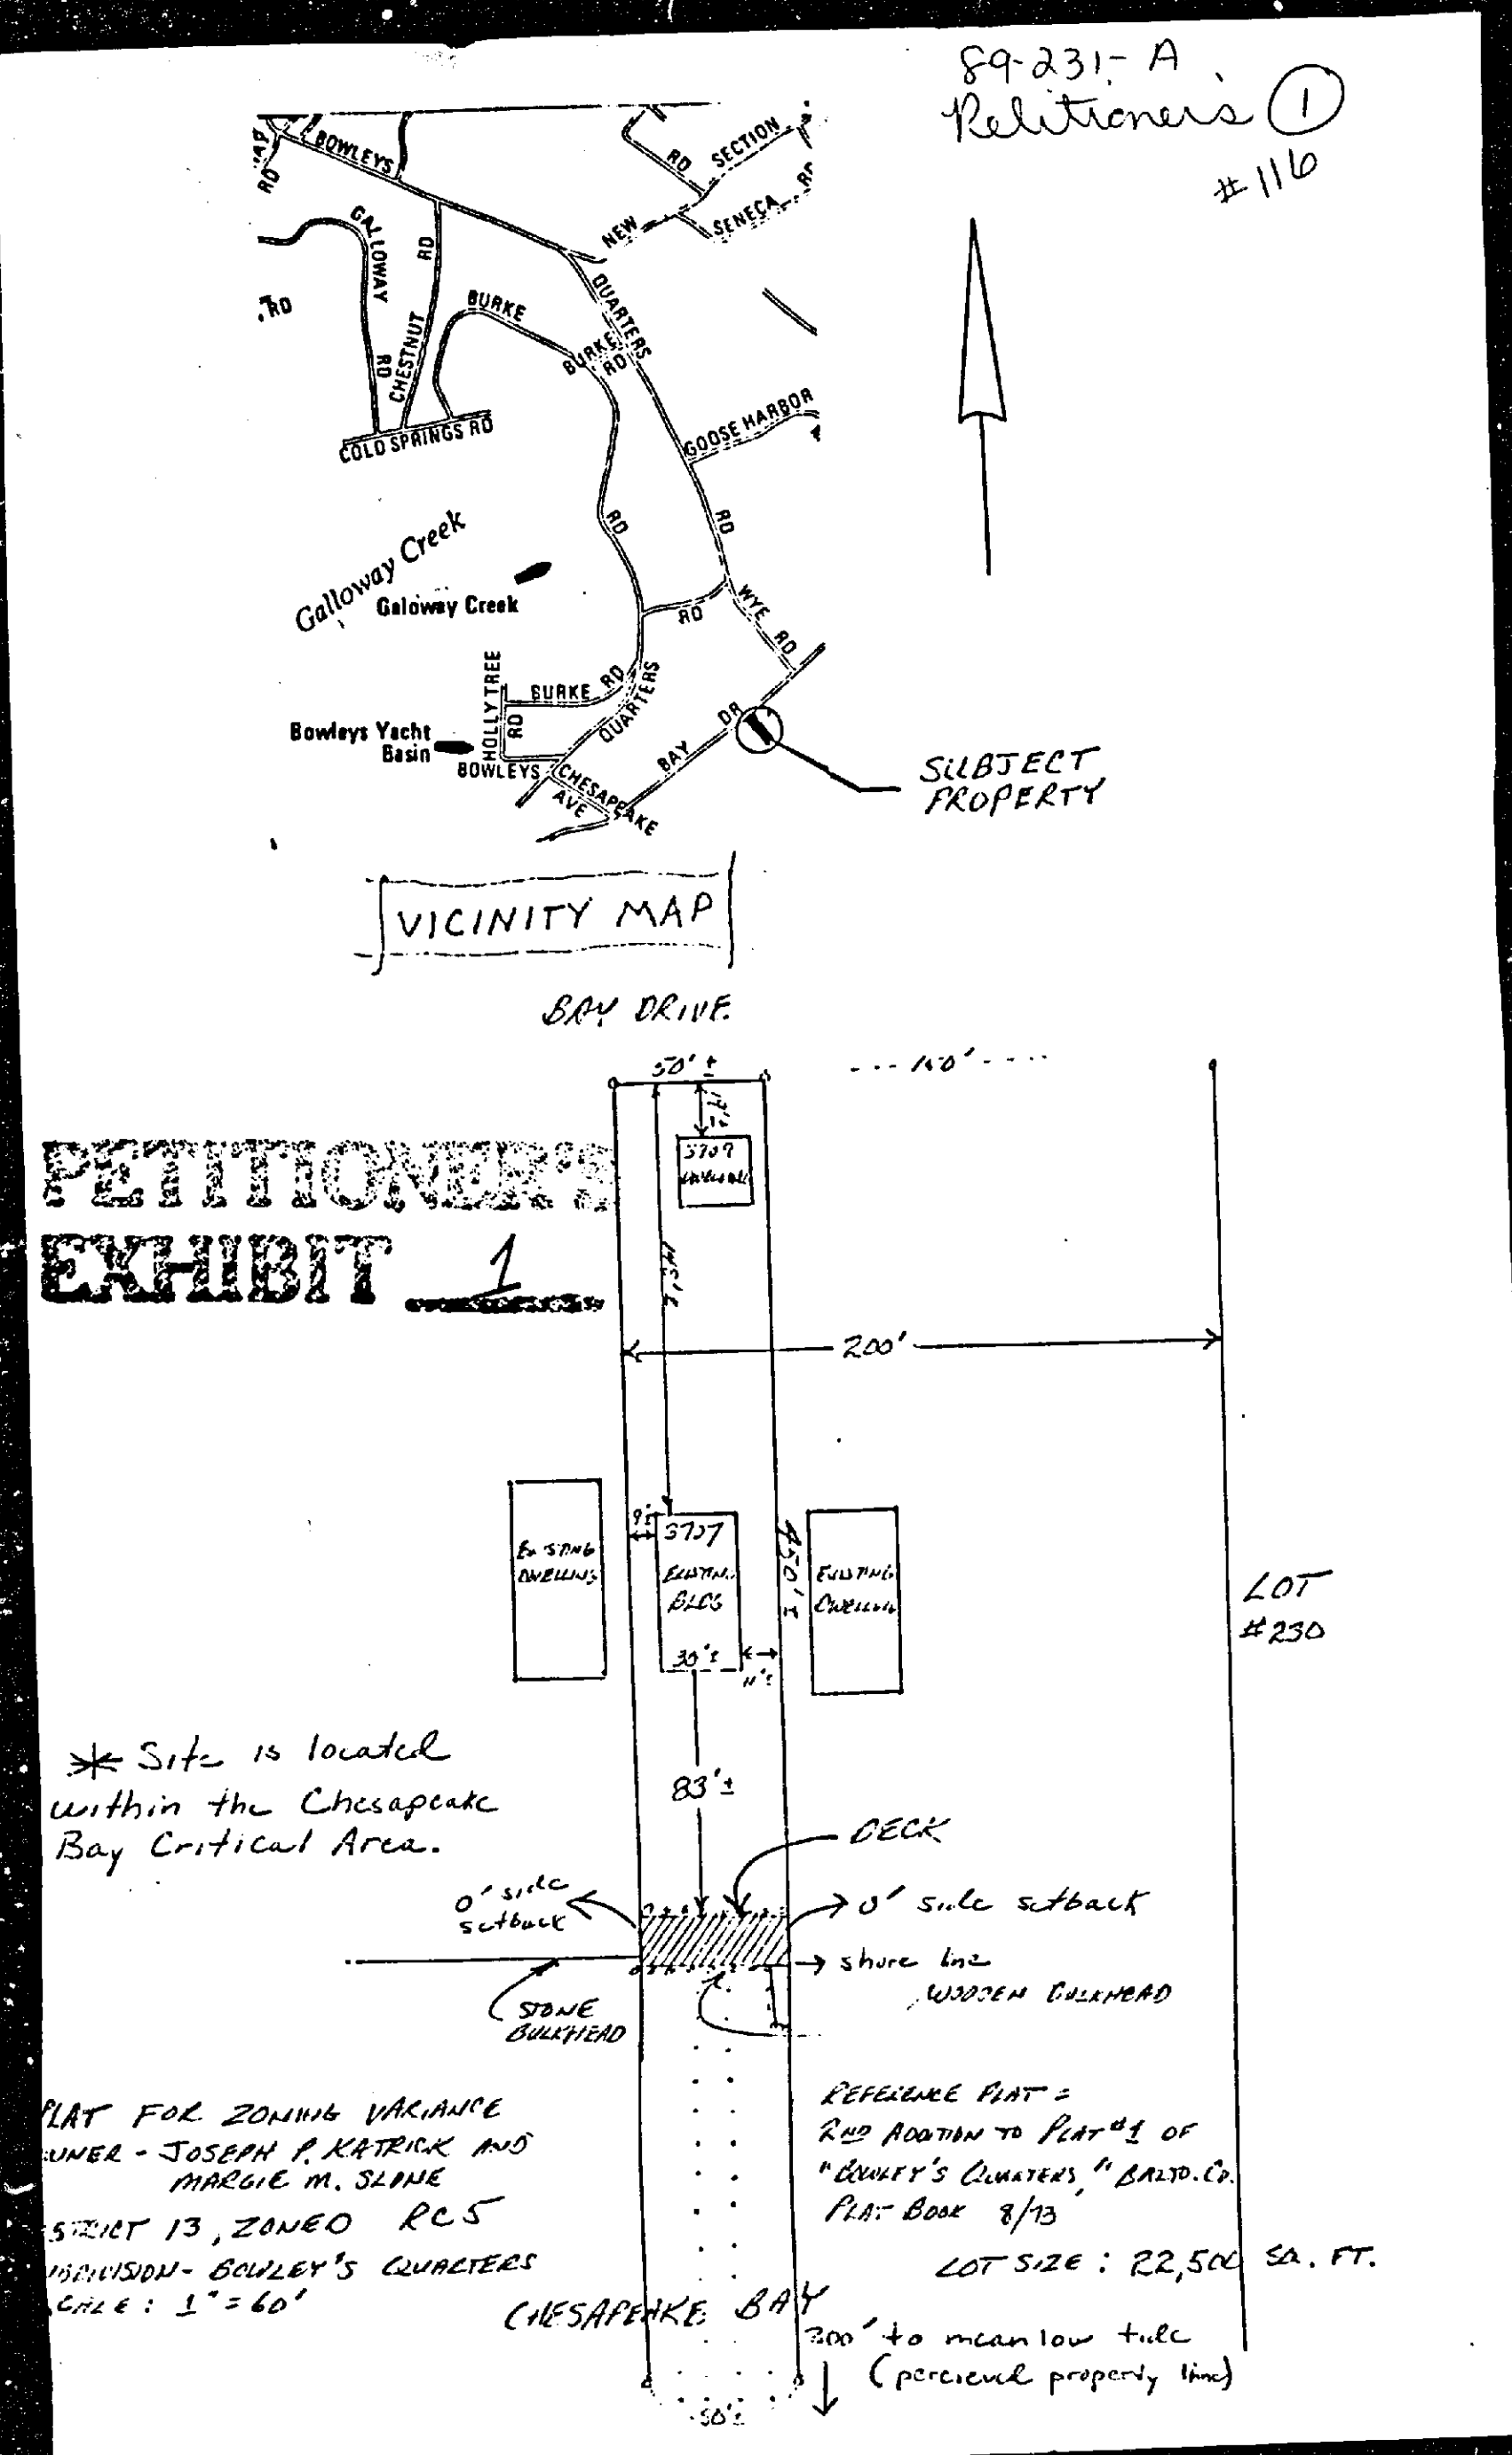 89-231-A
Petitioner's 1
#116
BOWLEYS
RD
GALLOWAY
RD
CHESTNUT
RD
RD
BURKE
BURKE
RD
QUARTERS
NEW
SECTION
RD
SENECA
RD
COLD SPRINGS RD
GOOSE HARBOR
RD
RD
Galloway Creek
Galoway Creek
RD
WYE RD
HOLLYTREE
RD
BURKE RD
QUARTERS
Bowleys Yacht
Basin
BOWLEYS
CHESAPEAKE
AVE
BAY DR
SUBJECT
PROPERTY
VICINITY MAP
BAY DRIVE
50'±
--- 150' ----
PETITIONER'S
EXHIBIT 1
3709
200'
EXISTING
DWELLING
9'±
3707
EXISTING
BLDG
30'±
11'±
450'±
EXISTING
DWELLING
LOT
#230
* Site is located
within the Chesapeake
Bay Critical Area.
83'±
DECK
0' side
setback
0' side setback
shore line
WOODEN BULKHEAD
STONE
BULKHEAD
PLAT FOR ZONING VARIANCE
OWNER - JOSEPH P. KATRICK AND
MARGIE M. SLONE
STRICT 13, ZONED RC5
SUBDIVISION - BOWLEY'S QUARTERS
SCALE: 1" = 60'
REFERENCE PLAT =
2ND ADDITION TO PLAT #1 OF
"BOWLEY'S QUARTERS," BALTO. CO.
PLAT BOOK 8/73
LOT SIZE: 22,500 SQ. FT.
CHESAPEAKE BAY
300' to mean low tide
(percieved property line)
50'±